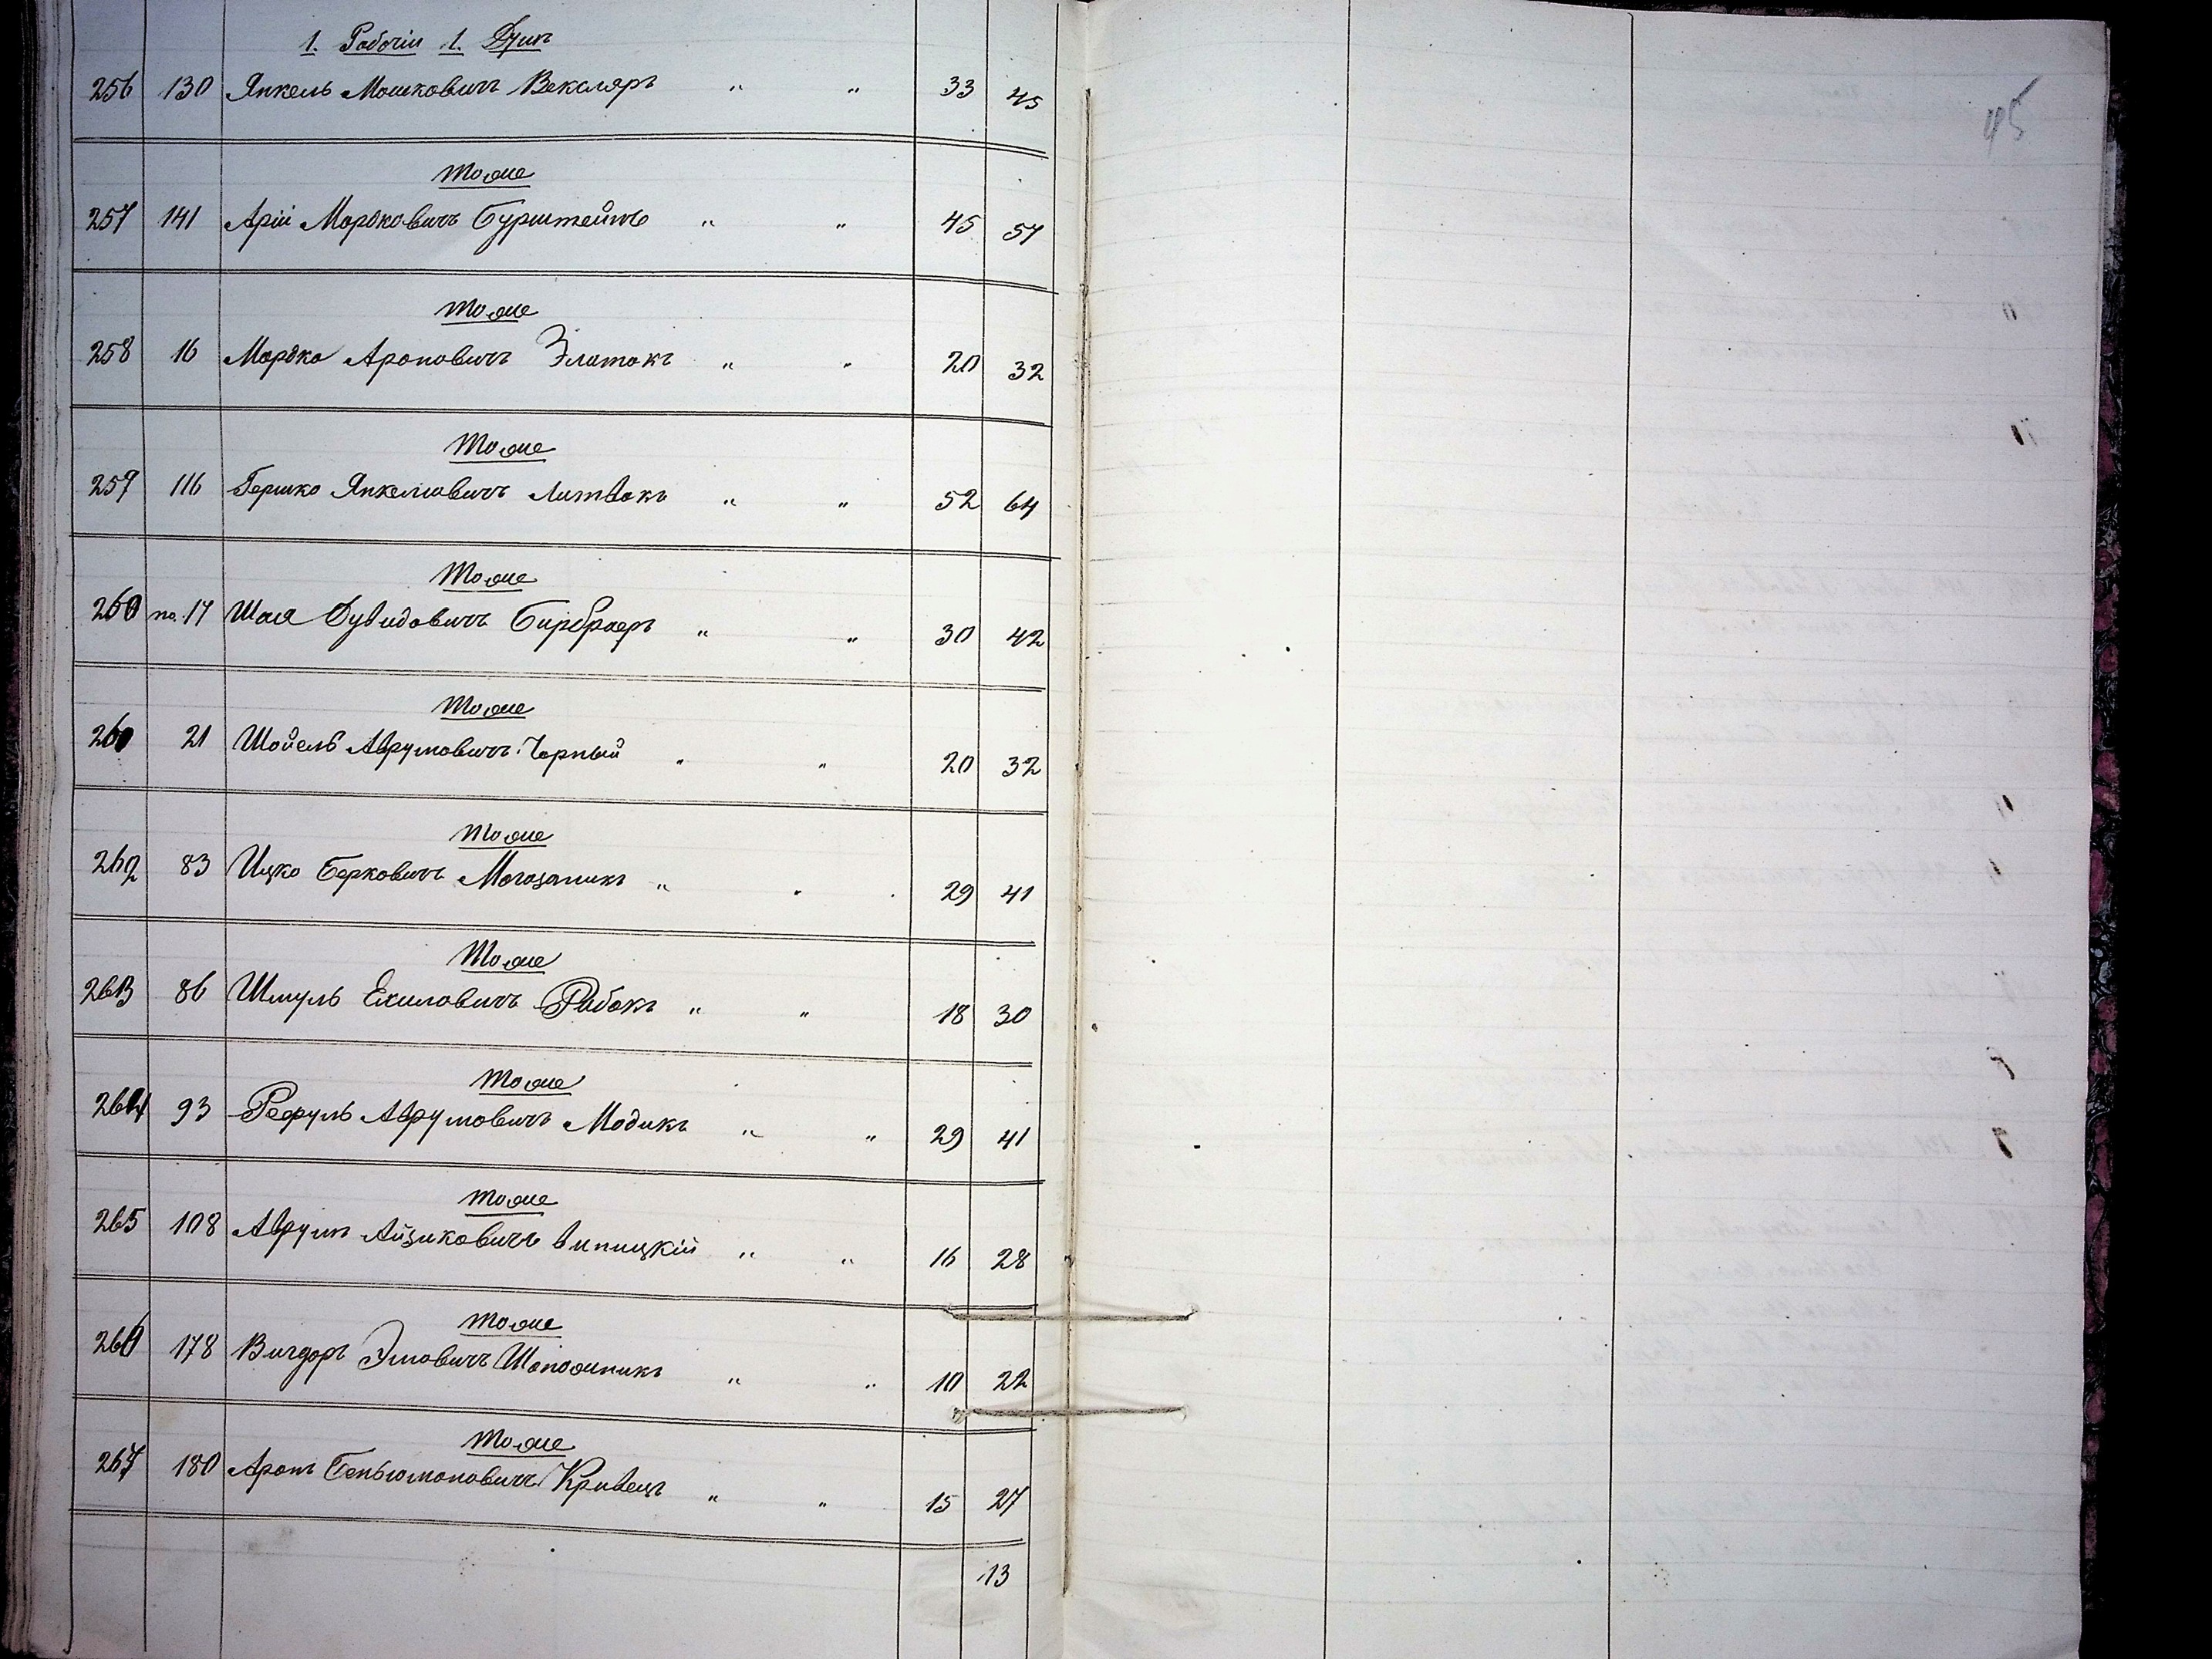 1. Рабочій 1. Душ
256 130 Янкель Мошковичъ Вексляръ " " 33 45
тоже
257 141 Арій Мордковичъ Бурштейнъ " " 45 57
тоже
258 16 Мордко Ароновичъ Злотокъ " " 20 32
тоже
259 116 Гершко Янкелювичъ Литвакъ " " 52 64
тоже
260 по. 17 Шая Дувидовичъ Бирбраеръ " " 30 42
тоже
261 21 Шоиель Аврумовичъ Чорный " " 20 32
тоже
262 83 Ицко Берковичъ Могозаникъ " " 29 41
тоже
263 86 Шмуль Ехиловичъ Рибакъ " " 18 30
тоже
264 93 Рефуль Аврумовичъ Модикъ " " 29 41
тоже
265 108 Аврумъ Айзиковичъ Винницкій " " 16 28
тоже
266 178 Вигдоръ Эловичъ Шапожникъ " " 10 22
тоже
267 180 Аронъ Беньюмоновичъ Кривецъ " " 15 27
13
45